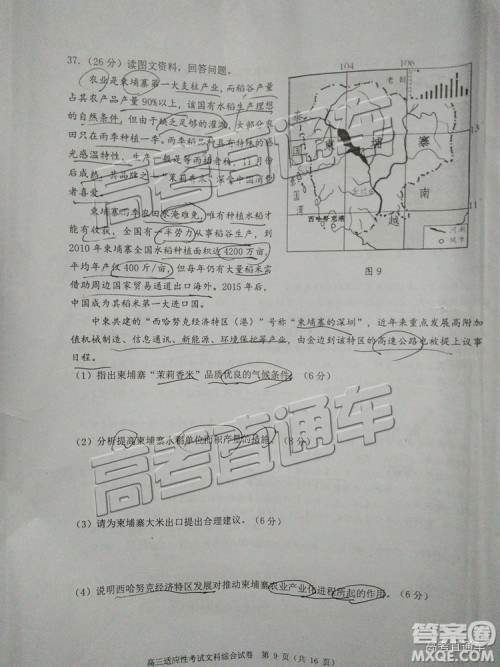 37.（26分）读图文资料，回答问题。
农业是柬埔寨第一大支柱产业，而稻谷产量
占其农产品产量90%以上，该国有水稻生产理想
的自然条件，但由于缺乏足够的灌溉，大部分农
田只在雨季种植一季。雨季稻谷品种有极强的感
光感温特性，生产一般是等雨种植，11月份
后成熟，其中品牌之一“茉莉香米”深受中国消费
者喜爱。
柬埔寨雨季农田水淹难免，唯有种植水稻才
能有收获，全国有一半劳力从事稻谷生产，到
2010年柬埔寨全国水稻种植面积达4200万亩，
平均年产仅400斤/亩，但每年仍有大量稻米需
借助周边国家贸易通道出口海外。2015年后，
中国成为其稻米第一大进口国。
中柬共建的“西哈努克经济特区（港）”号称“柬埔寨的深圳”，近年来重点发展高附加
值机械制造、信息通讯、新能源、环境保护等产业，由金边到该特区的高速公路也被提上议事
日程。
（1）指出柬埔寨“茉莉香米”品质优良的气候条件。（6分）
（2）分析提高柬埔寨水稻单位面积产量的措施。（8分）
（3）请为柬埔寨大米出口提出合理建议。（6分）
（4）说明西哈努克经济特区发展对推动柬埔寨农业产业化进程所起的作用。（6分）
104 106
老挝
泰国
柬埔寨
13
西哈努克港
越南
河流
城市
图9
高三适应性考试文科综合试卷 第9页（共16页）
高考直通车
高考直通车
高考直通车
答案圈
MXQE.COM